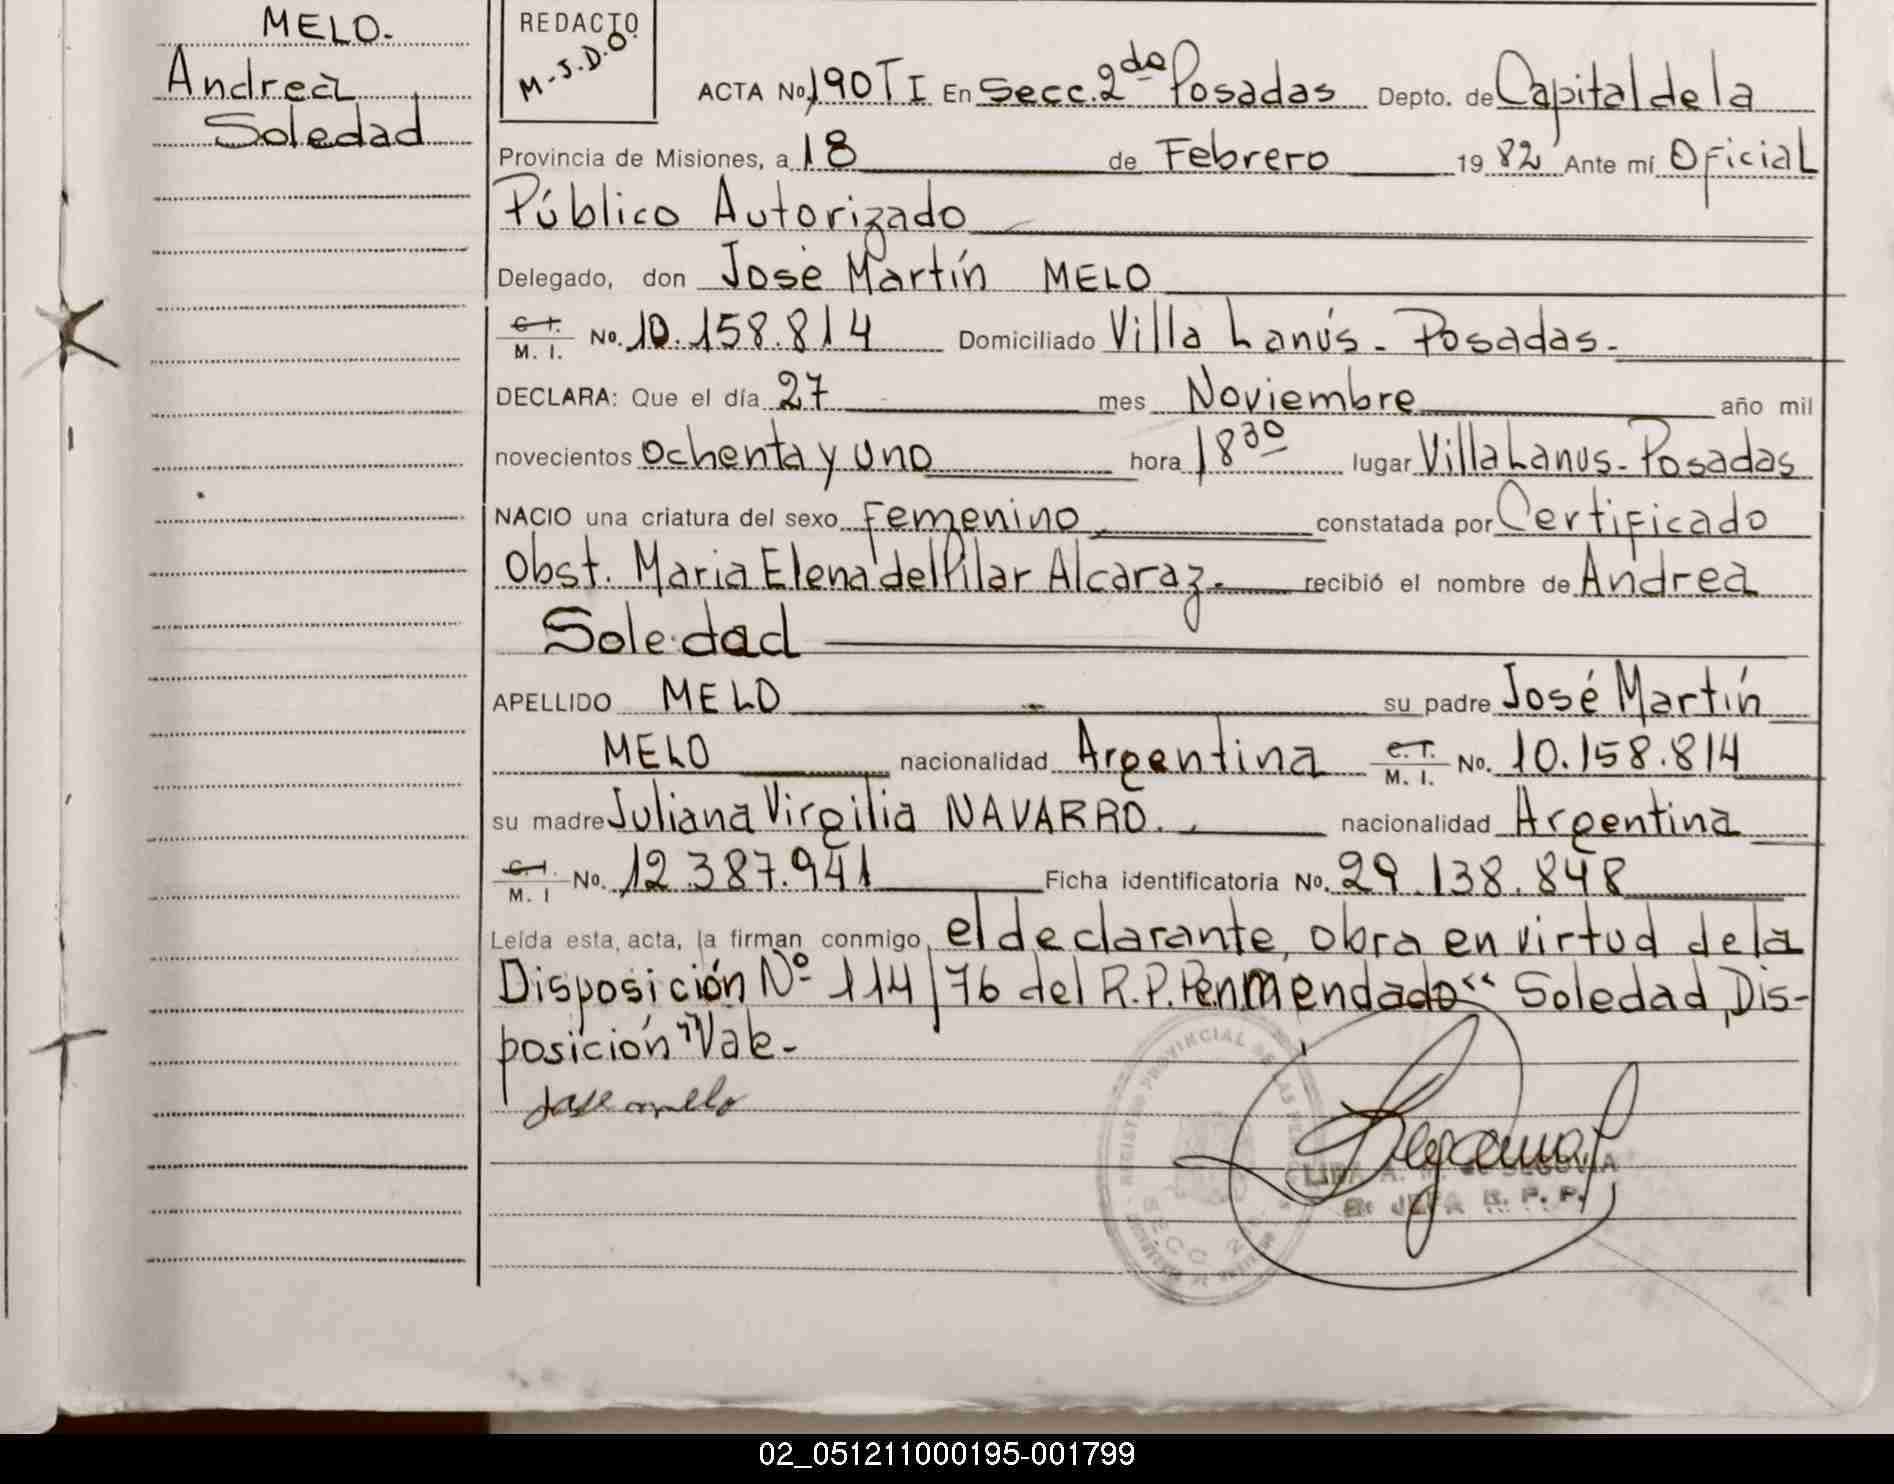 MELO.
Andrea
Soledad
REDACTO
M-J.D.O.
ACTA No. 190 TI En Secc. 2da Posadas Depto. de Capital de la
Provincia de Misiones, a 18 de Febrero 1982 Ante mí Oficial
Público Autorizado
Delegado, don José Martín MELO
C.I. M. I. No. 10.158.814 Domiciliado Villa Lanús - Posadas.
DECLARA: Que el día 27 mes Noviembre año mil
novecientos ochenta y uno hora 18 30 lugar Villa Lanus - Posadas
NACIO una criatura del sexo Femenino constatada por Certificado
Obst. Maria Elena del Pilar Alcaraz. recibió el nombre de Andrea
Soledad
APELLIDO MELO su padre José Martín
MELO nacionalidad Argentina C.I. M. I. No. 10.158.814
su madre Juliana Virgilia NAVARRO. nacionalidad Argentina
C.I. M. I No. 12.387.941 Ficha identificatoria No. 29.138.848
Leída esta acta, la firman conmigo, el declarante, obra en virtud de la
Disposición Nº 114/76 del R.P.P. enmendado "Soledad, Dis-
posición" Vale-
Jose melo
REGISTRO PROVINCIAL DE LAS
SECC
SEGOVIA
JEFA R. P. P.
02_051211000195-001799